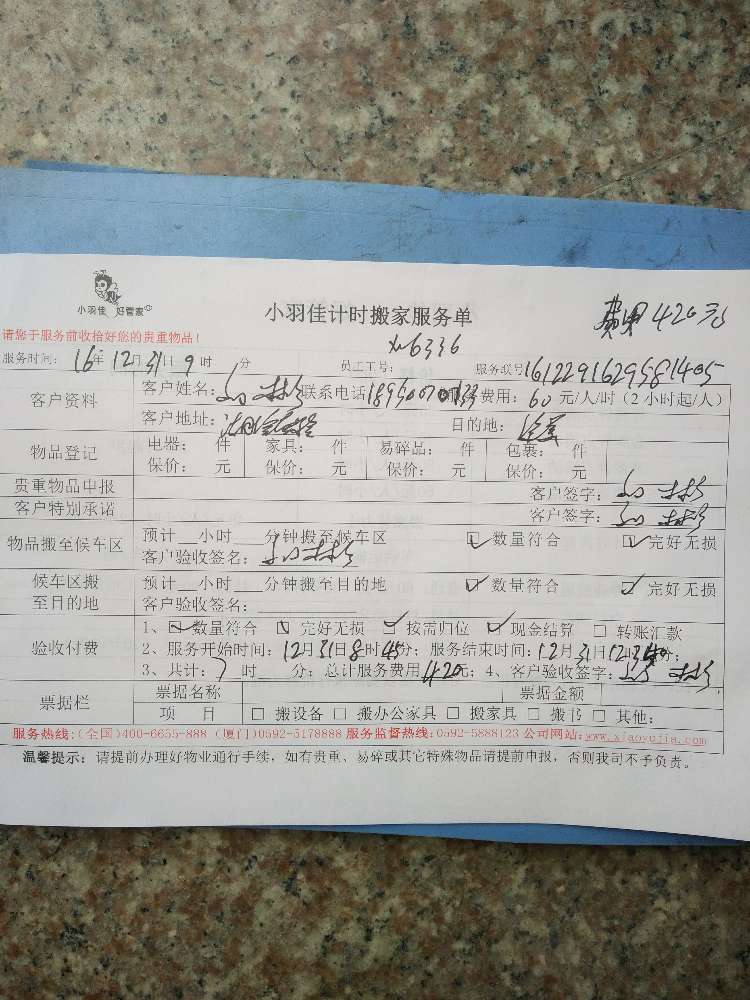 小羽佳 好管家
小羽佳计时搬家服务单
费用420元
请您于服务前收拾好您的贵重物品!
服务时间: 16年12月31日9时 分 员工工号: 6336 服务联号
客户资料
客户姓名: 联系电话 费用: 60元/人/时(2小时起/人)
客户地址: 目的地:
物品登记
电器: 件 家具: 件 易碎品: 件 包裹: 件
保价: 元 保价: 元 保价: 元 保价: 元
贵重物品申报 客户签字:
客户特别承诺 客户签字:
物品搬至候车区
预计__小时__分钟搬至候车区 ☑数量符合 ☑完好无损
客户验收签名:
候车区搬至目的地
预计__小时__分钟搬至目的地 ☑数量符合 ☑完好无损
客户验收签名:
验收付费
1、☑数量符合 ☑完好无损 ☑按需归位 ☑现金结算 □转账汇款
2、服务开始时间:12月31日8时45分; 服务结束时间:12月31日12时 分;
3、共计:7时__分; 总计服务费用420元; 4、客户验收签字:
票据栏
票据名称 票据金额
项 目 □搬设备 □搬办公家具 □搬家具 □搬书 □其他:
服务热线:(全国)400-6655-888 (厦门)0592-5178888 服务监督热线:0592-5888123 公司网站:www.xiaoyujia.com
温馨提示: 请提前办理好物业通行手续,如有贵重、易碎或其它特殊物品请提前申报,否则我司不予负责。